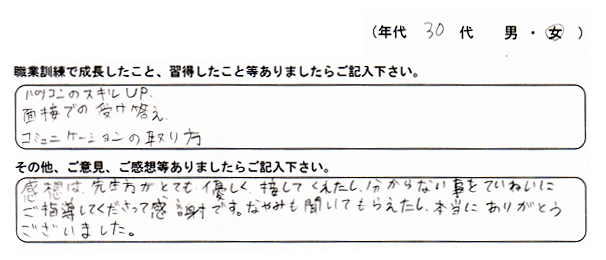 (年代 30 代 男 ・ 女 )
職業訓練で成長したこと、習得したこと等ありましたらご記入下さい。
パソコンのスキルUP.
面接での受け答え.
コミュニケーションの取り方
その他、ご意見、ご感想等ありましたらご記入下さい。
感想は、先生方がとても優しく、接してくれたし、分からない事をていねいに
ご指導してくださって感謝です。なやみも聞いてもらえたし、本当にありがとう
ございました。